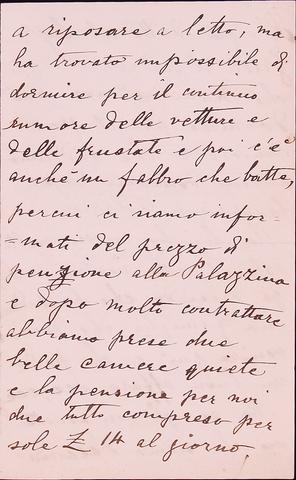 a riposare a letto, ma
ha trovato impossibile di
dormire per il continuo
rumore delle vetture e
delle frustate e poi c'è
anche un fabbro che batte,
percui ci siamo infor-
=mati del prezzo di
penzione alla Palazzina
e dopo molto contrattare
abbiamo prese due
belle camere quiete
e la pensione per noi
due tutto compreso per
sole £ 14 al giorno.